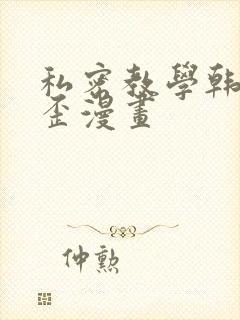 私密教學韓
歪漫畫
仲勲